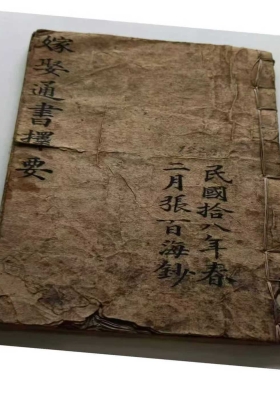 民國拾八年春
二月張百海鈔
嫁娶通書擇要